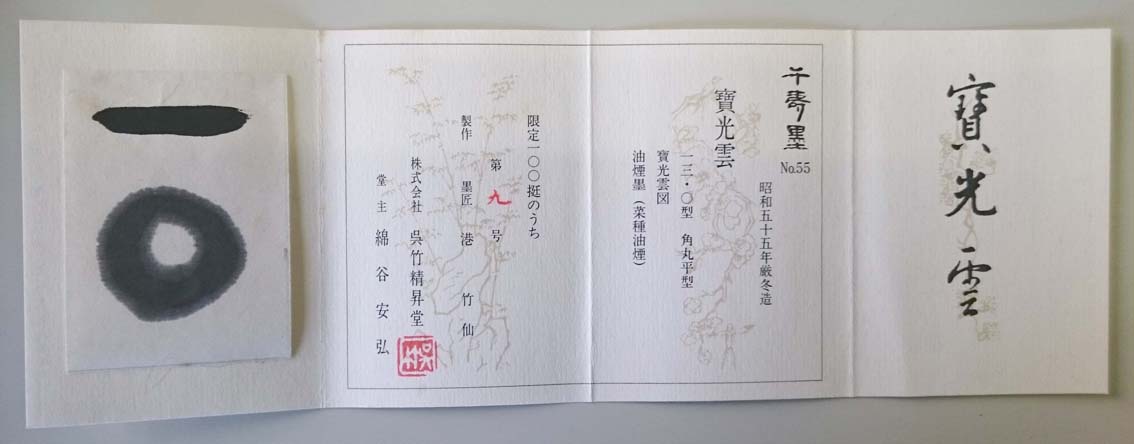 寶光雲
千寿墨
No.55
昭和五十五年厳冬造
寶光雲
一三・〇型 角丸平型
寶光雲図
油煙墨(菜種油煙)
限定一〇〇挺のうち
第九号
製作 墨匠 港 竹仙
株式会社 呉竹精昇堂
堂主 綿谷安弘